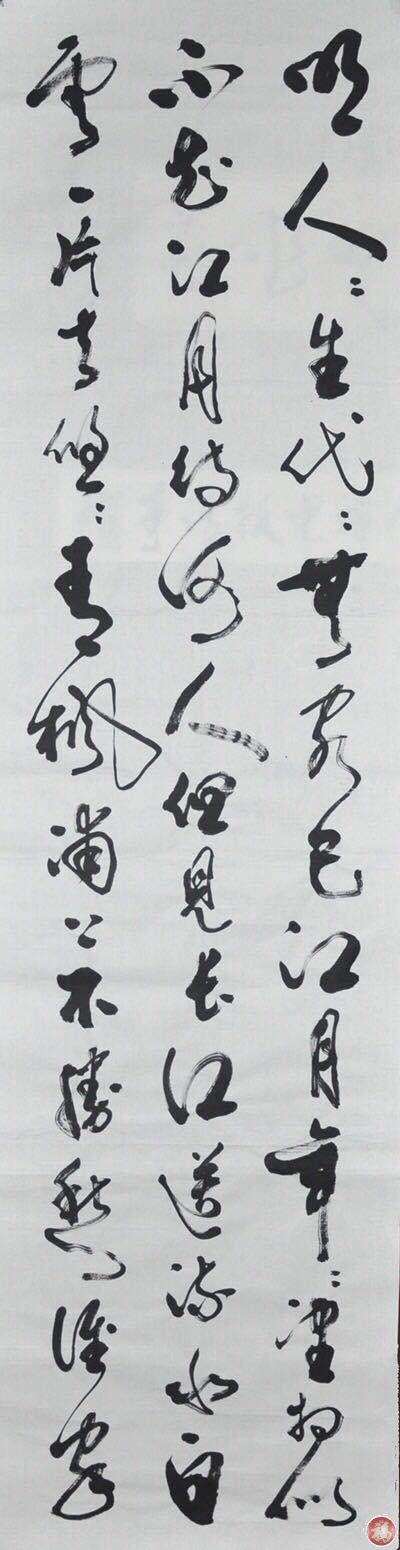 照人〻生代〻無窮已江月年〻望相似
不知江月待何人但見長江送流水白
雲一片去悠〻青楓浦上不勝愁誰家